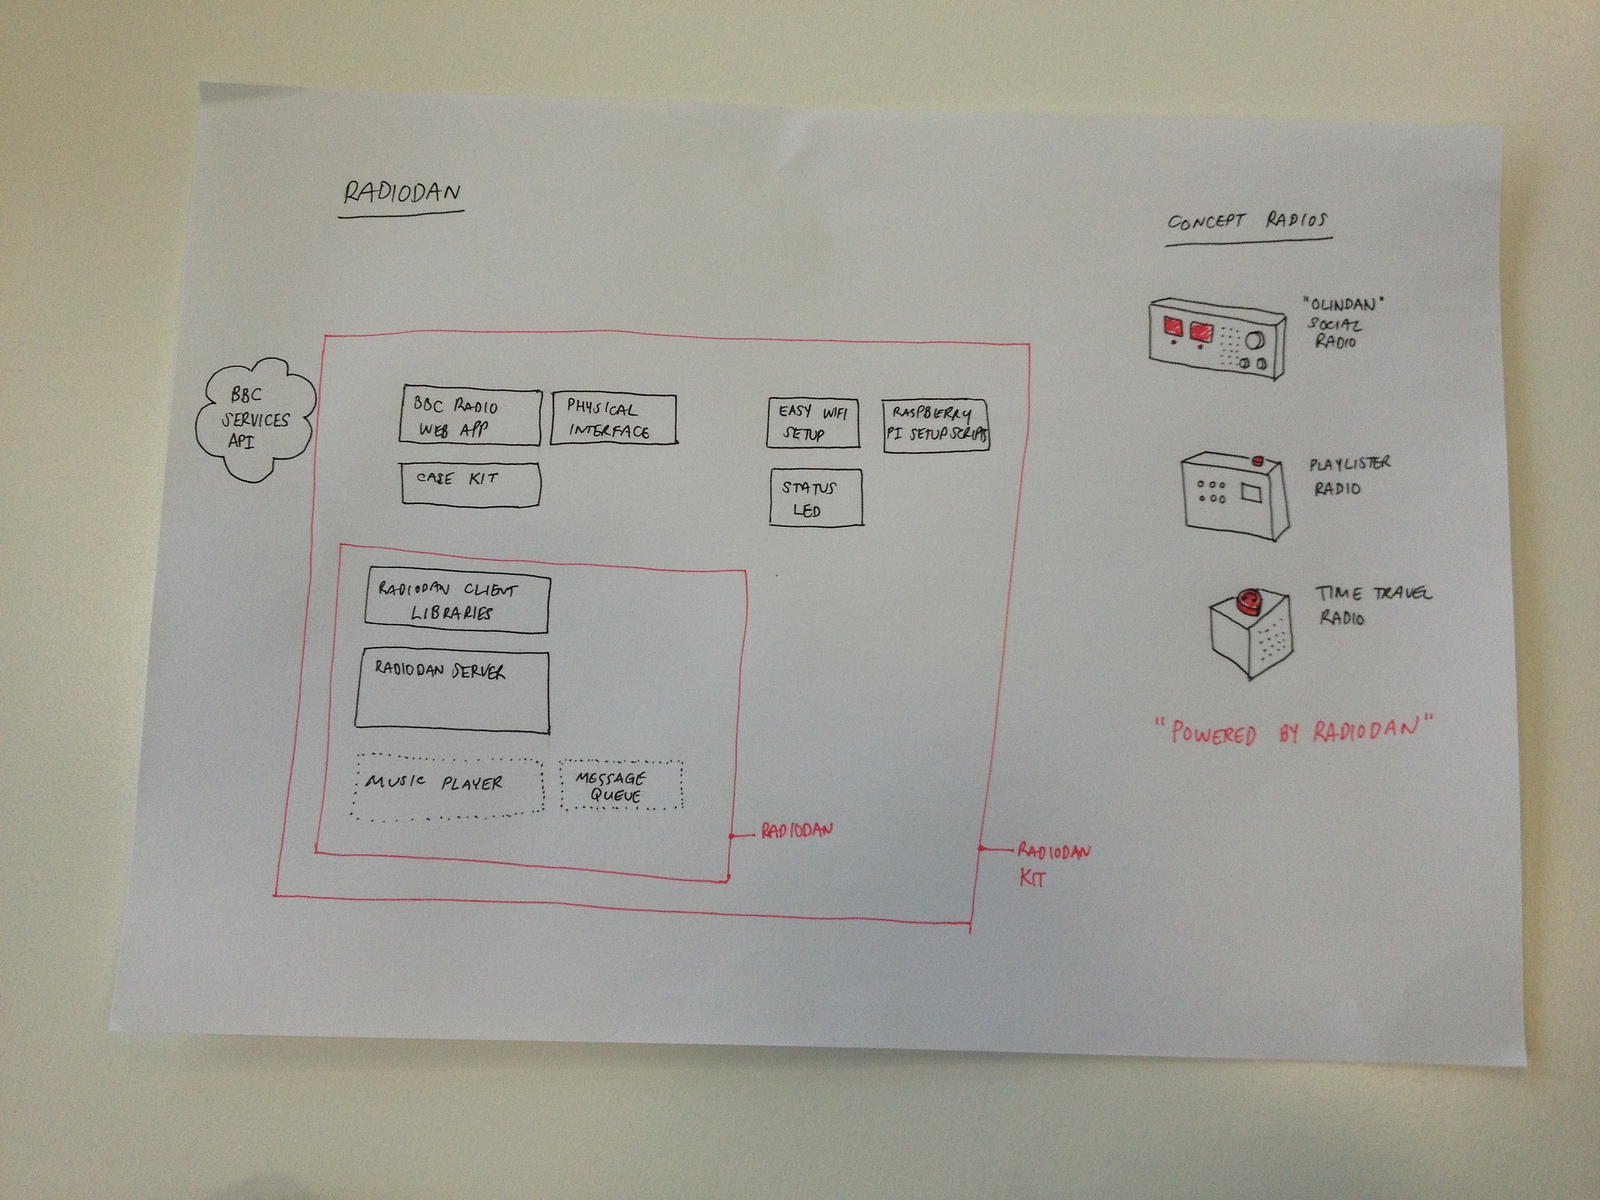 RADIODAN
BBC
SERVICES
API
BBC RADIO
WEB APP
PHYSICAL
INTERFACE
EASY WIFI
SETUP
RASPBERRY
PI SETUP SCRIPTS
CASE KIT
STATUS
LED
RADIODAN CLIENT
LIBRARIES
RADIODAN SERVER
MUSIC PLAYER
MESSAGE
QUEUE
RADIODAN
RADIODAN
KIT
CONCEPT RADIOS
"OLINDAN"
SOCIAL
RADIO
PLAYLISTER
RADIO
TIME TRAVEL
RADIO
"POWERED BY RADIODAN"